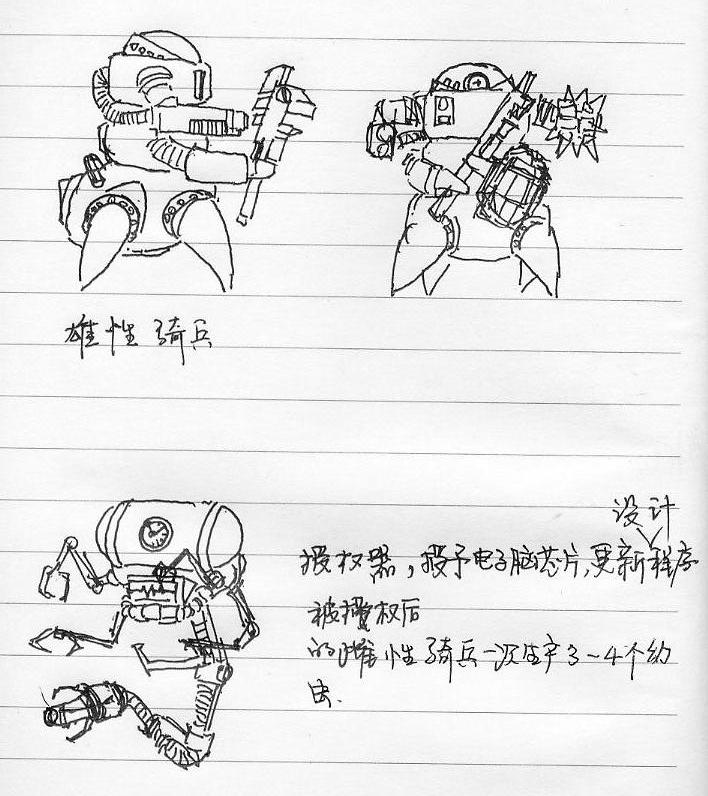 雄性骑兵
设计
授权器，授予电子脑芯片，更新程序
被授权后
的雌性骑兵一次生产3~4个幼
虫.